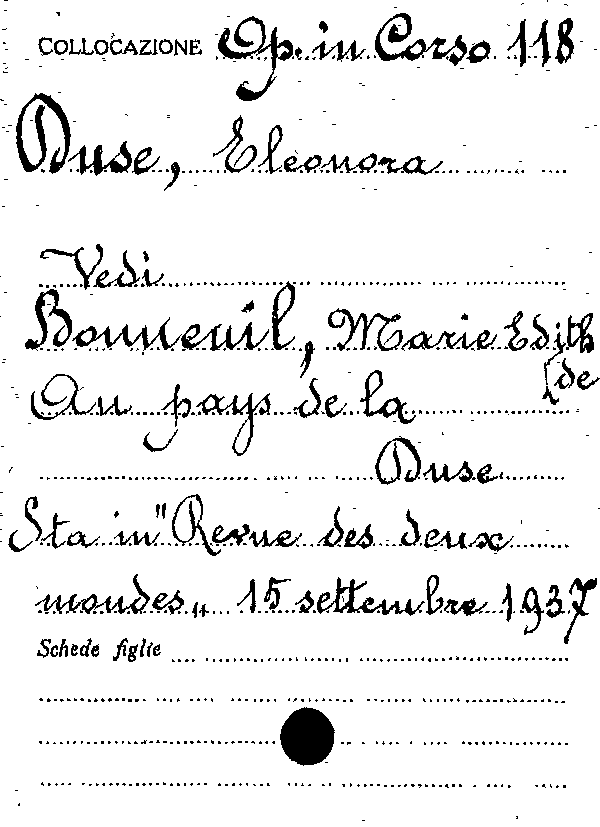 COLLOCAZIONE Op. in Corso 118
Duse, Eleonora
Vedi
Bonneuil, Marie Edith
[de
Au pays de la
Duse
Sta in "Revue des deux
mondes„ 15 settembre 1937
Schede figlie